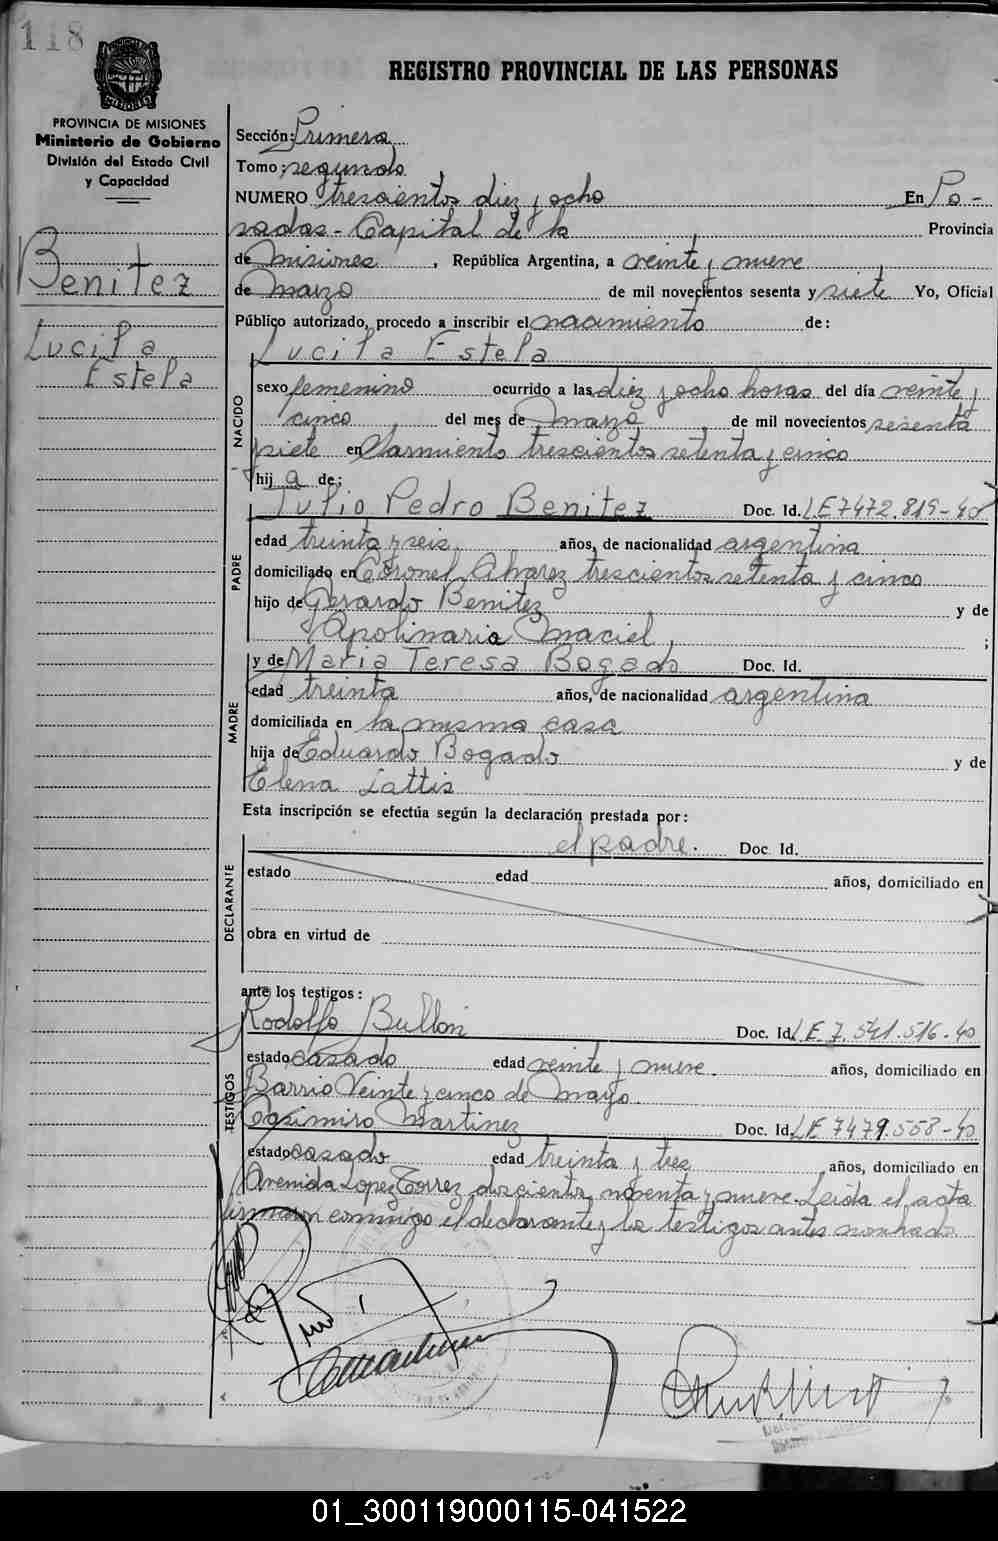 118
REGISTRO PROVINCIAL DE LAS PERSONAS
PROVINCIA DE MISIONES
Ministerio de Gobierno
División del Estado Civil
y Capacidad
Benitez
Lucila
Estela
Sección: Primera
Tomo: segundo
NUMERO trescientos diez y ocho En Po-
sadas - Capital de la Provincia
de Misiones, República Argentina, a veinte y nueve
de Marzo de mil novecientos sesenta y siete Yo, Oficial
Público autorizado, procedo a inscribir el nacimiento de:
Lucila Estela
NACIDO
sexo femenino ocurrido a las diez y ocho horas del día veinte y
cinco del mes de Marzo de mil novecientos sesenta
y siete en Sarmiento trescientos setenta y cinco
hij a de:
Julio Pedro Benitez Doc. Id. LE 7472.819-40
PADRE
edad treinta y seis años, de nacionalidad argentina
domiciliado en Coronel Alvarez trescientos setenta y cinco
hijo de Gerardo Benitez y de
Apolinaria Maciel ;
MADRE
y de Maria Teresa Bogado Doc. Id.
edad treinta años, de nacionalidad argentina
domiciliada en la misma casa
hija de Eduardo Bogado y de
Elena Lattis
Esta inscripción se efectúa según la declaración prestada por:
el padre. Doc. Id.
DECLARANTE
estado edad años, domiciliado en
obra en virtud de
ante los testigos:
TESTIGOS
Rodolfo Bullon Doc. Id. LE 7.541.516-40
estado casado edad veinte y nueve. años, domiciliado en
Barrio Veinte y cinco de Mayo.
Casimiro Martinez Doc. Id. LE 7479.558-40
estado casado edad treinta y tres años, domiciliado en
Avenida Lopez Torrez doscientos noventa y nueve. Leida el acta
firmaron conmigo el declarante y los testigos antes nombrado
01_300119000115-041522